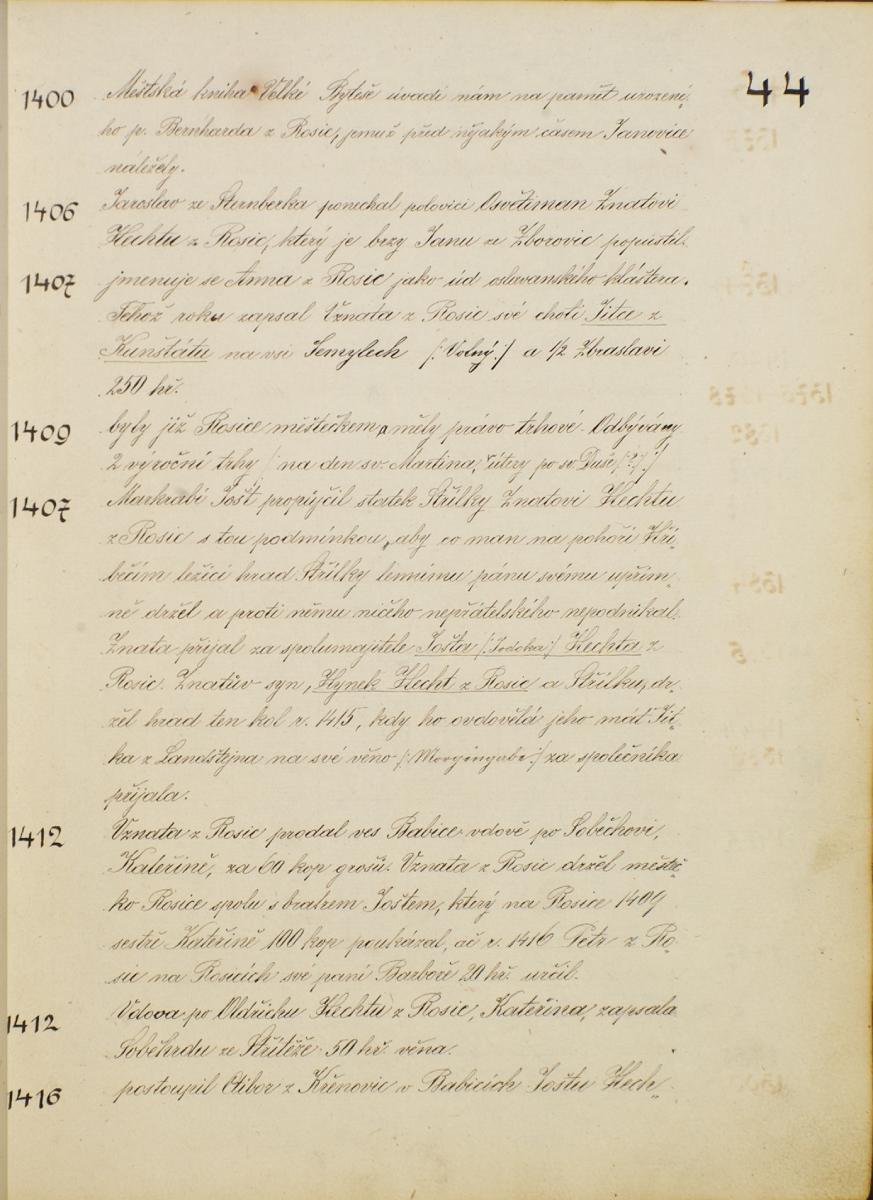 44
1400 Městská kniha Velké Byteše uvádí nám na pamět urozené-
ho p. Bernharda z Rosic, jemuž před nějakým časem Janovice
náležely.
1406 Jaroslav ze Šternberka ponechal polovici Osvětiman Znatovi
Hechtu z Rosic, který je brzy Janu ze Zborovic popustil.
1407 jmenuje se Anna z Rosic jako úd oslavanského kláštera.
Téhož roku zapsal Vznata z Rosic své choti Jitce z
Kunštátu na vsi Semylech /: Volný :/ a 1/2 Zbraslavi
250 hř.
1409 byly již Rosice městečkem, a měly právo trhové. Odbývány
2 výroční trhy /: na den sv. Martina, v úterý po sv Duše, (?) :/
1407 Markrabí Jošt propůjčil statek Střílky Znatovi Hechtu
z Rosic s tou podmínkou, aby co man na pohoří Hří-
běcím ležící hrad Střílky lennímu pánu svému upřím-
ně držel a proti němu ničeho nepřátelského nepodnikal.
Znata přijal za spolumajitele Jošta /: Jodoka :/ Hechta z
Rosic. Znatův syn, Hynek Hecht z Rosic a Střílku, dr-
žel hrad ten kol r. 1415, kdy ho ovdovělá jeho máť Jit-
ka z Landštejna na své věno /: Morgengabe :/ za společníka
přijala.
1412 Vznata z Rosic prodal ves Babice vdově po Soběkovi,
Kateřině, za 60 kop grošů. Vznata z Rosic držel městeč-
ko Rosice spolu s bratrem Joštem, který na Rosice 1409
sestře Kateřině 100 kop poukázal, ač r. 1416 Petr z Ro-
sic na Rosicích své paní Barboře 20 hř. určil.
1412 Vdova po Oldřichu Hechtu z Rosic, Kateřina, zapsala
Soběhrdu ze Střítěže 50 hř. věna.
1416 postoupil Ctibor z Křenovic v Babicích Joštu Hech-